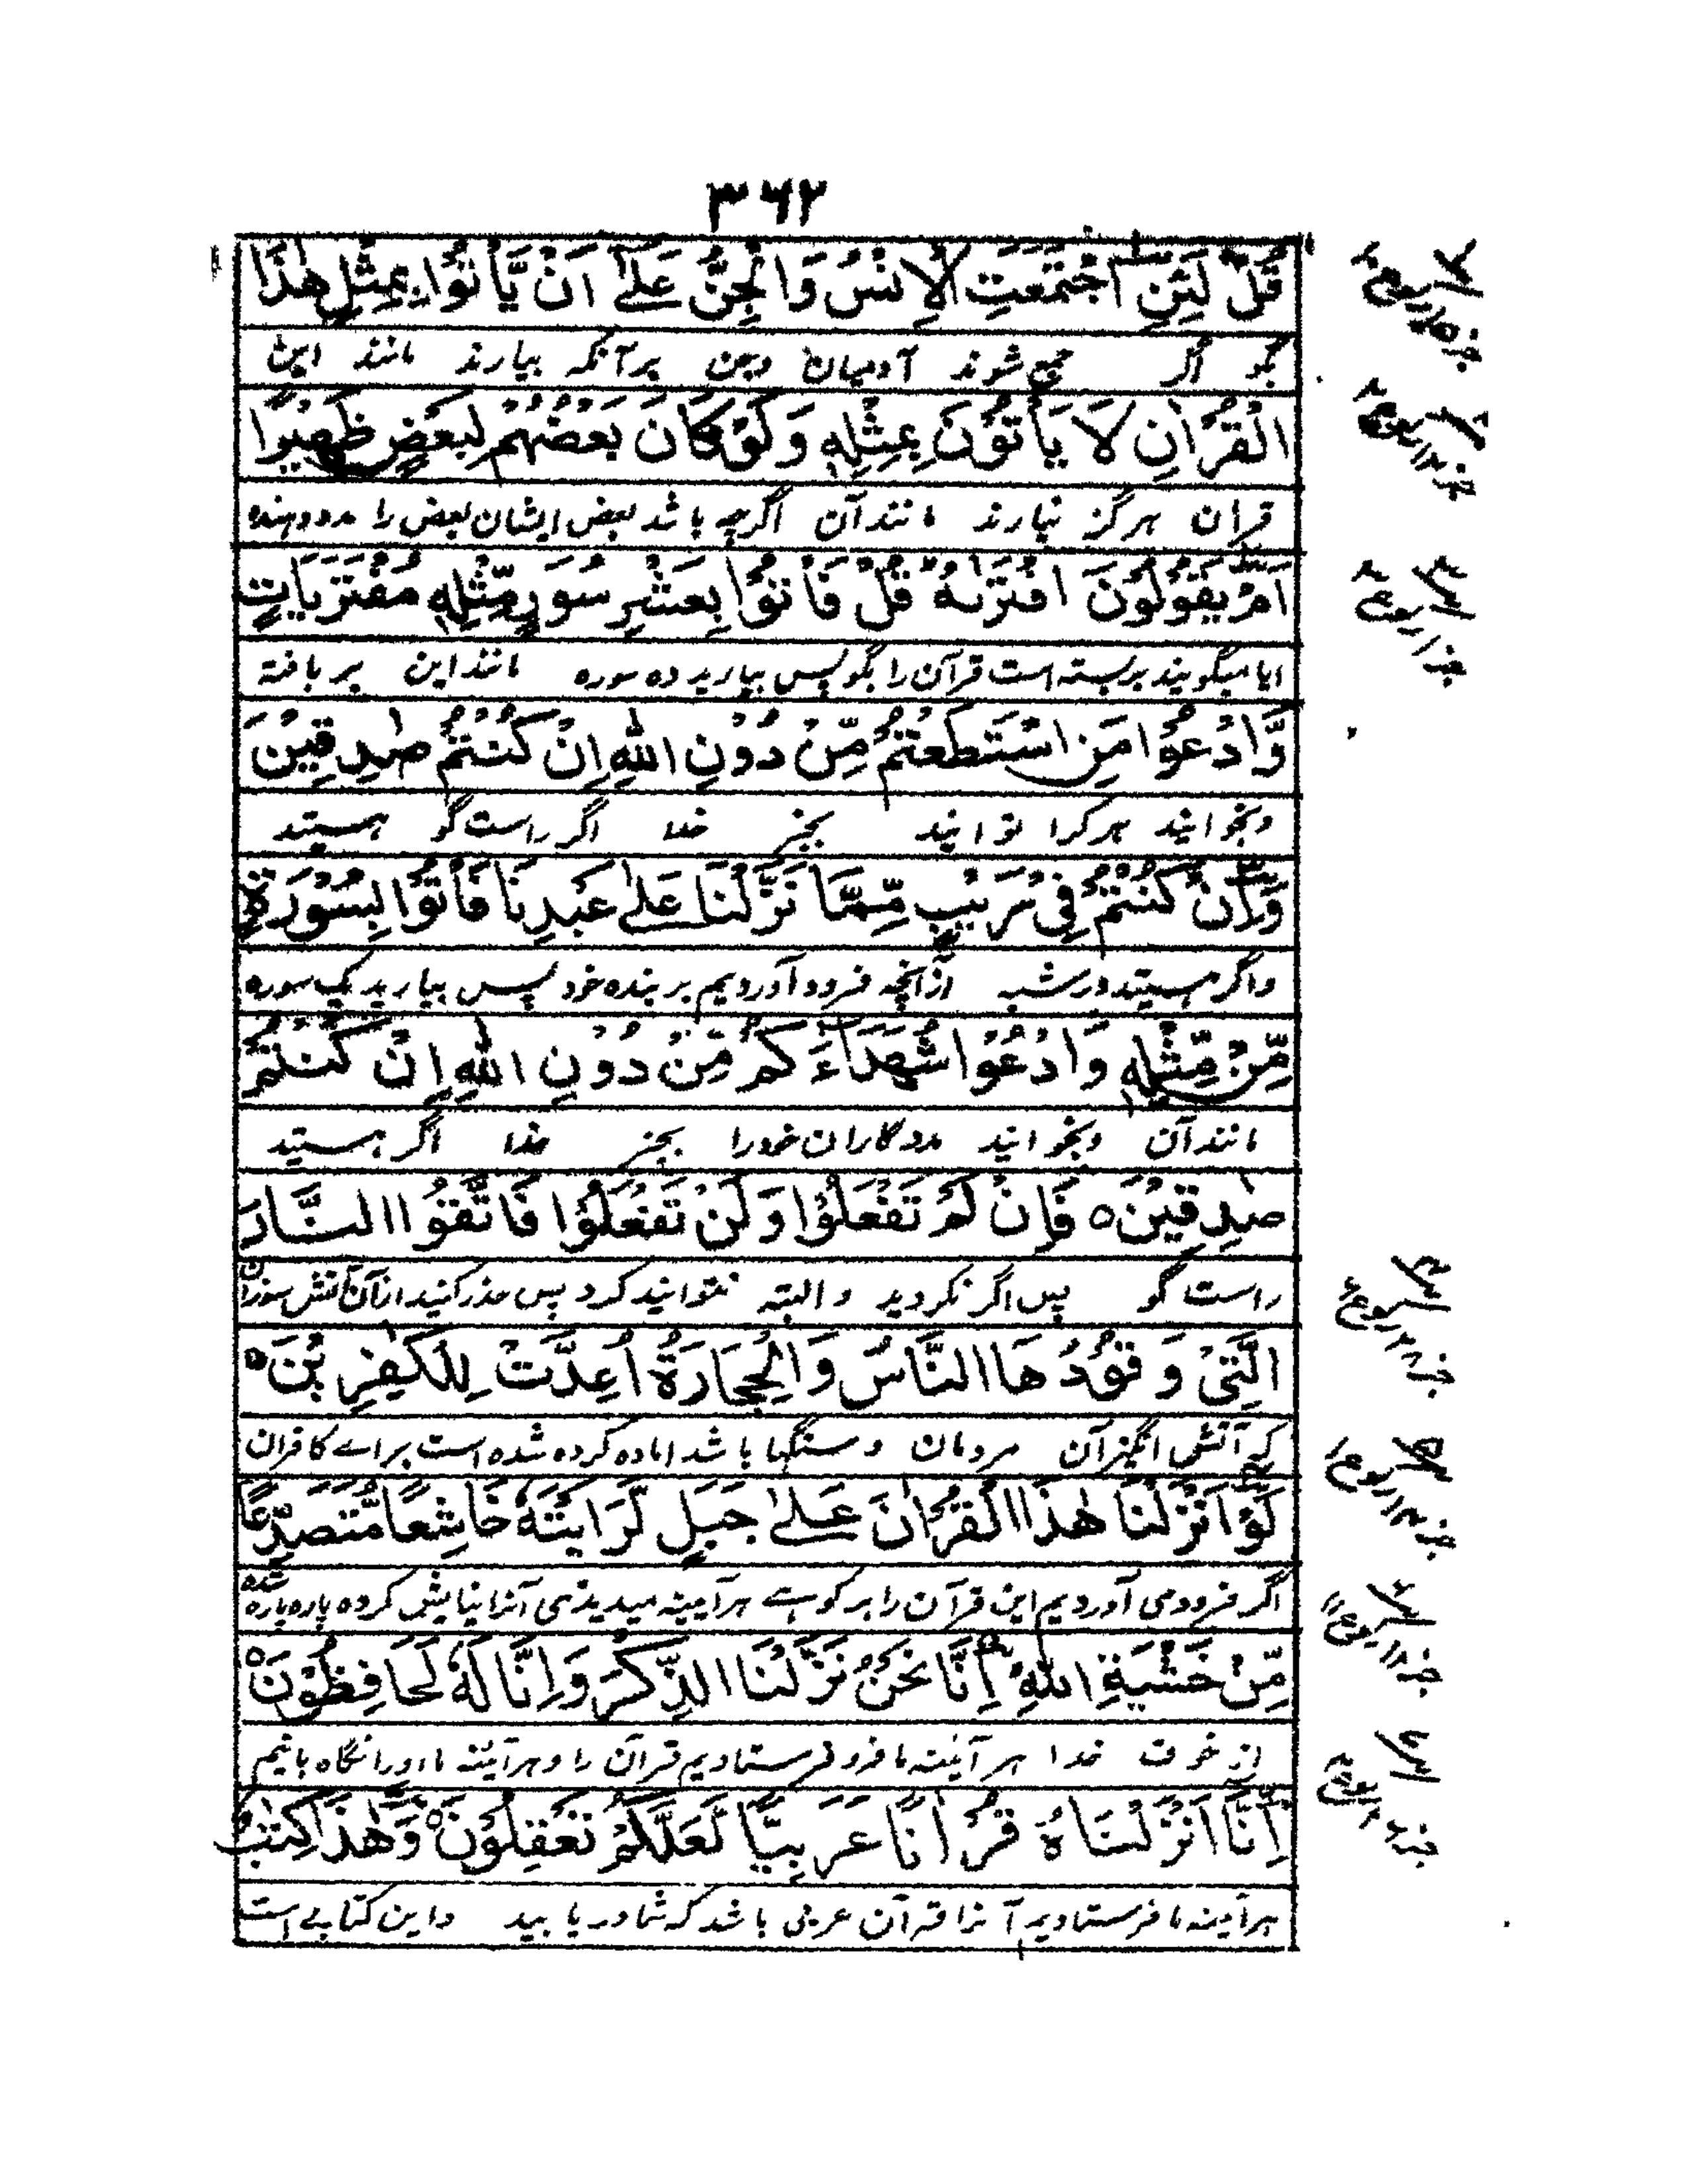 ٣٦٢
قُلْ لَئِنِ اجْتَمَعَتِ الْاِنْسُ وَالْجِنُّ عَلٰٓى اَنْ يَّأْتُوْا بِمِثْلِ هٰذَا
بگو اگر جمع شوند آدمیان وجن برآنکه بیارند مانند این
الْقُرْاٰنِ لَا يَأْتُوْنَ بِمِثْلِهٖ وَلَوْ كَانَ بَعْضُهُمْ لِبَعْضٍ ظَهِيْرًا
قران ہرگز نیارند مانند آن اگرچہ باشد بعض ایشان بعض را مدد دہندہ
اَمْ يَقُوْلُوْنَ افْتَرٰىهُ قُلْ فَأْتُوْا بِعَشْرِ سُوَرٍ مِّثْلِهٖ مُفْتَرَيَاتٍ
ایا میگویند بربستہ است قرآن را بگو پس بیارید دہ سورہ مانند این بر بافتہ
وَّادْعُوْا مَنِ اسْتَطَعْتُمْ مِّنْ دُوْنِ اللّٰهِ اِنْ كُنْتُمْ صٰدِقِيْنَ
وبخوانید ہرکرا توانید بجز خدا اگر راست گو ہستید
وَاِنْ كُنْتُمْ فِيْ رَيْبٍ مِّمَّا نَزَّلْنَا عَلٰى عَبْدِنَا فَأْتُوْا بِسُوْرَةٍ
واگر ہستید در شبہ ازانچہ فرود آوردیم بر بندہ خود پس بیارید یک سورہ
مِّنْ مِّثْلِهٖ وَادْعُوْا شُهَدَآءَكُمْ مِّنْ دُوْنِ اللّٰهِ اِنْ كُنْتُمْ
مانند آن وبخوانید مددگاران خود را بجز خدا اگر ہستید
صٰدِقِيْنَ ٥ فَاِنْ لَمْ تَفْعَلُوْا وَلَنْ تَفْعَلُوْا فَاتَّقُوا النَّارَ
راست گو پس اگر نکردید والبتہ نتوانید کرد پس حذر کنید ازان آتش سوزان
الَّتِيْ وَقُوْدُهَا النَّاسُ وَالْحِجَارَةُ اُعِدَّتْ لِلْكٰفِرِيْنَ ٥
کہ آتش انگیز آن مردمان وسنگہا باشد امادہ کردہ شدہ است براے کافران
لَوْ اَنْزَلْنَا هٰذَا الْقُرْاٰنَ عَلٰى جَبَلٍ لَّرَاَيْتَهٗ خَاشِعًا مُّتَصَدِّعًا
اگر فرود می آوردیم این قرآن را بر کوہے ہرآئینہ میدیدی آنرا نیایش کردہ پارہ پارہ شدہ
مِّنْ خَشْيَةِ اللّٰهِ اِنَّا نَحْنُ نَزَّلْنَا الذِّكْرَ وَاِنَّا لَهٗ لَحَافِظُوْنَ ٥
از خوف خدا ہرآئینہ ما فرو فرستادیم قرآن را وہرآئینہ ما اورا نگاہ بانیم
اِنَّا اَنْزَلْنَاهُ قُرْاٰنًا عَرَبِيًّا لَّعَلَّكُمْ تَعْقِلُوْنَ ٥ وَهٰذَا كِتٰبٌ
ہرآئینہ ما فرستادیم آنرا قرآن عربی باشد کہ شما دریابید واین کتابے است